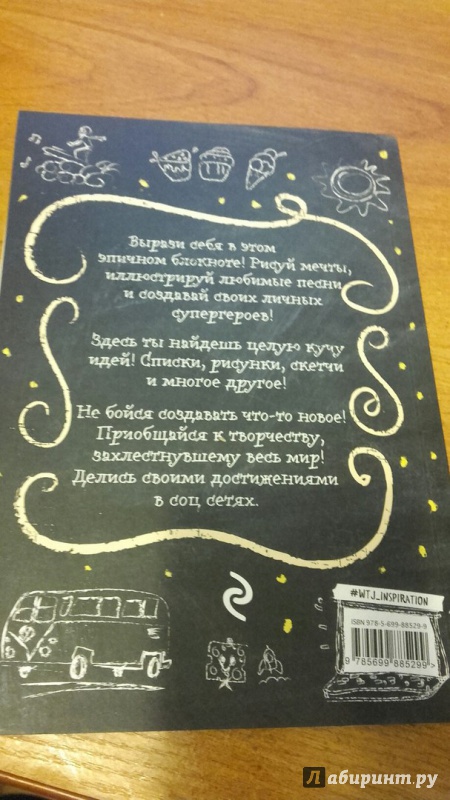 Вырази себя в этом
эпичном блокноте! Рисуй мечты,
иллюстрируй любимые песни
и создавай своих личных
супергероев!
Здесь ты найдешь целую кучу
идей! Списки, рисунки, скетчи
и многое другое!
Не бойся создавать что-то новое!
Приобщайся к творчеству,
захлестнувшему весь мир!
Делись своими достижениями
в соц сетях.
#WTJ_INSPIRATION
ISBN 978-5-699-88529-9
9 785699 885299 >
Лабиринт.ру